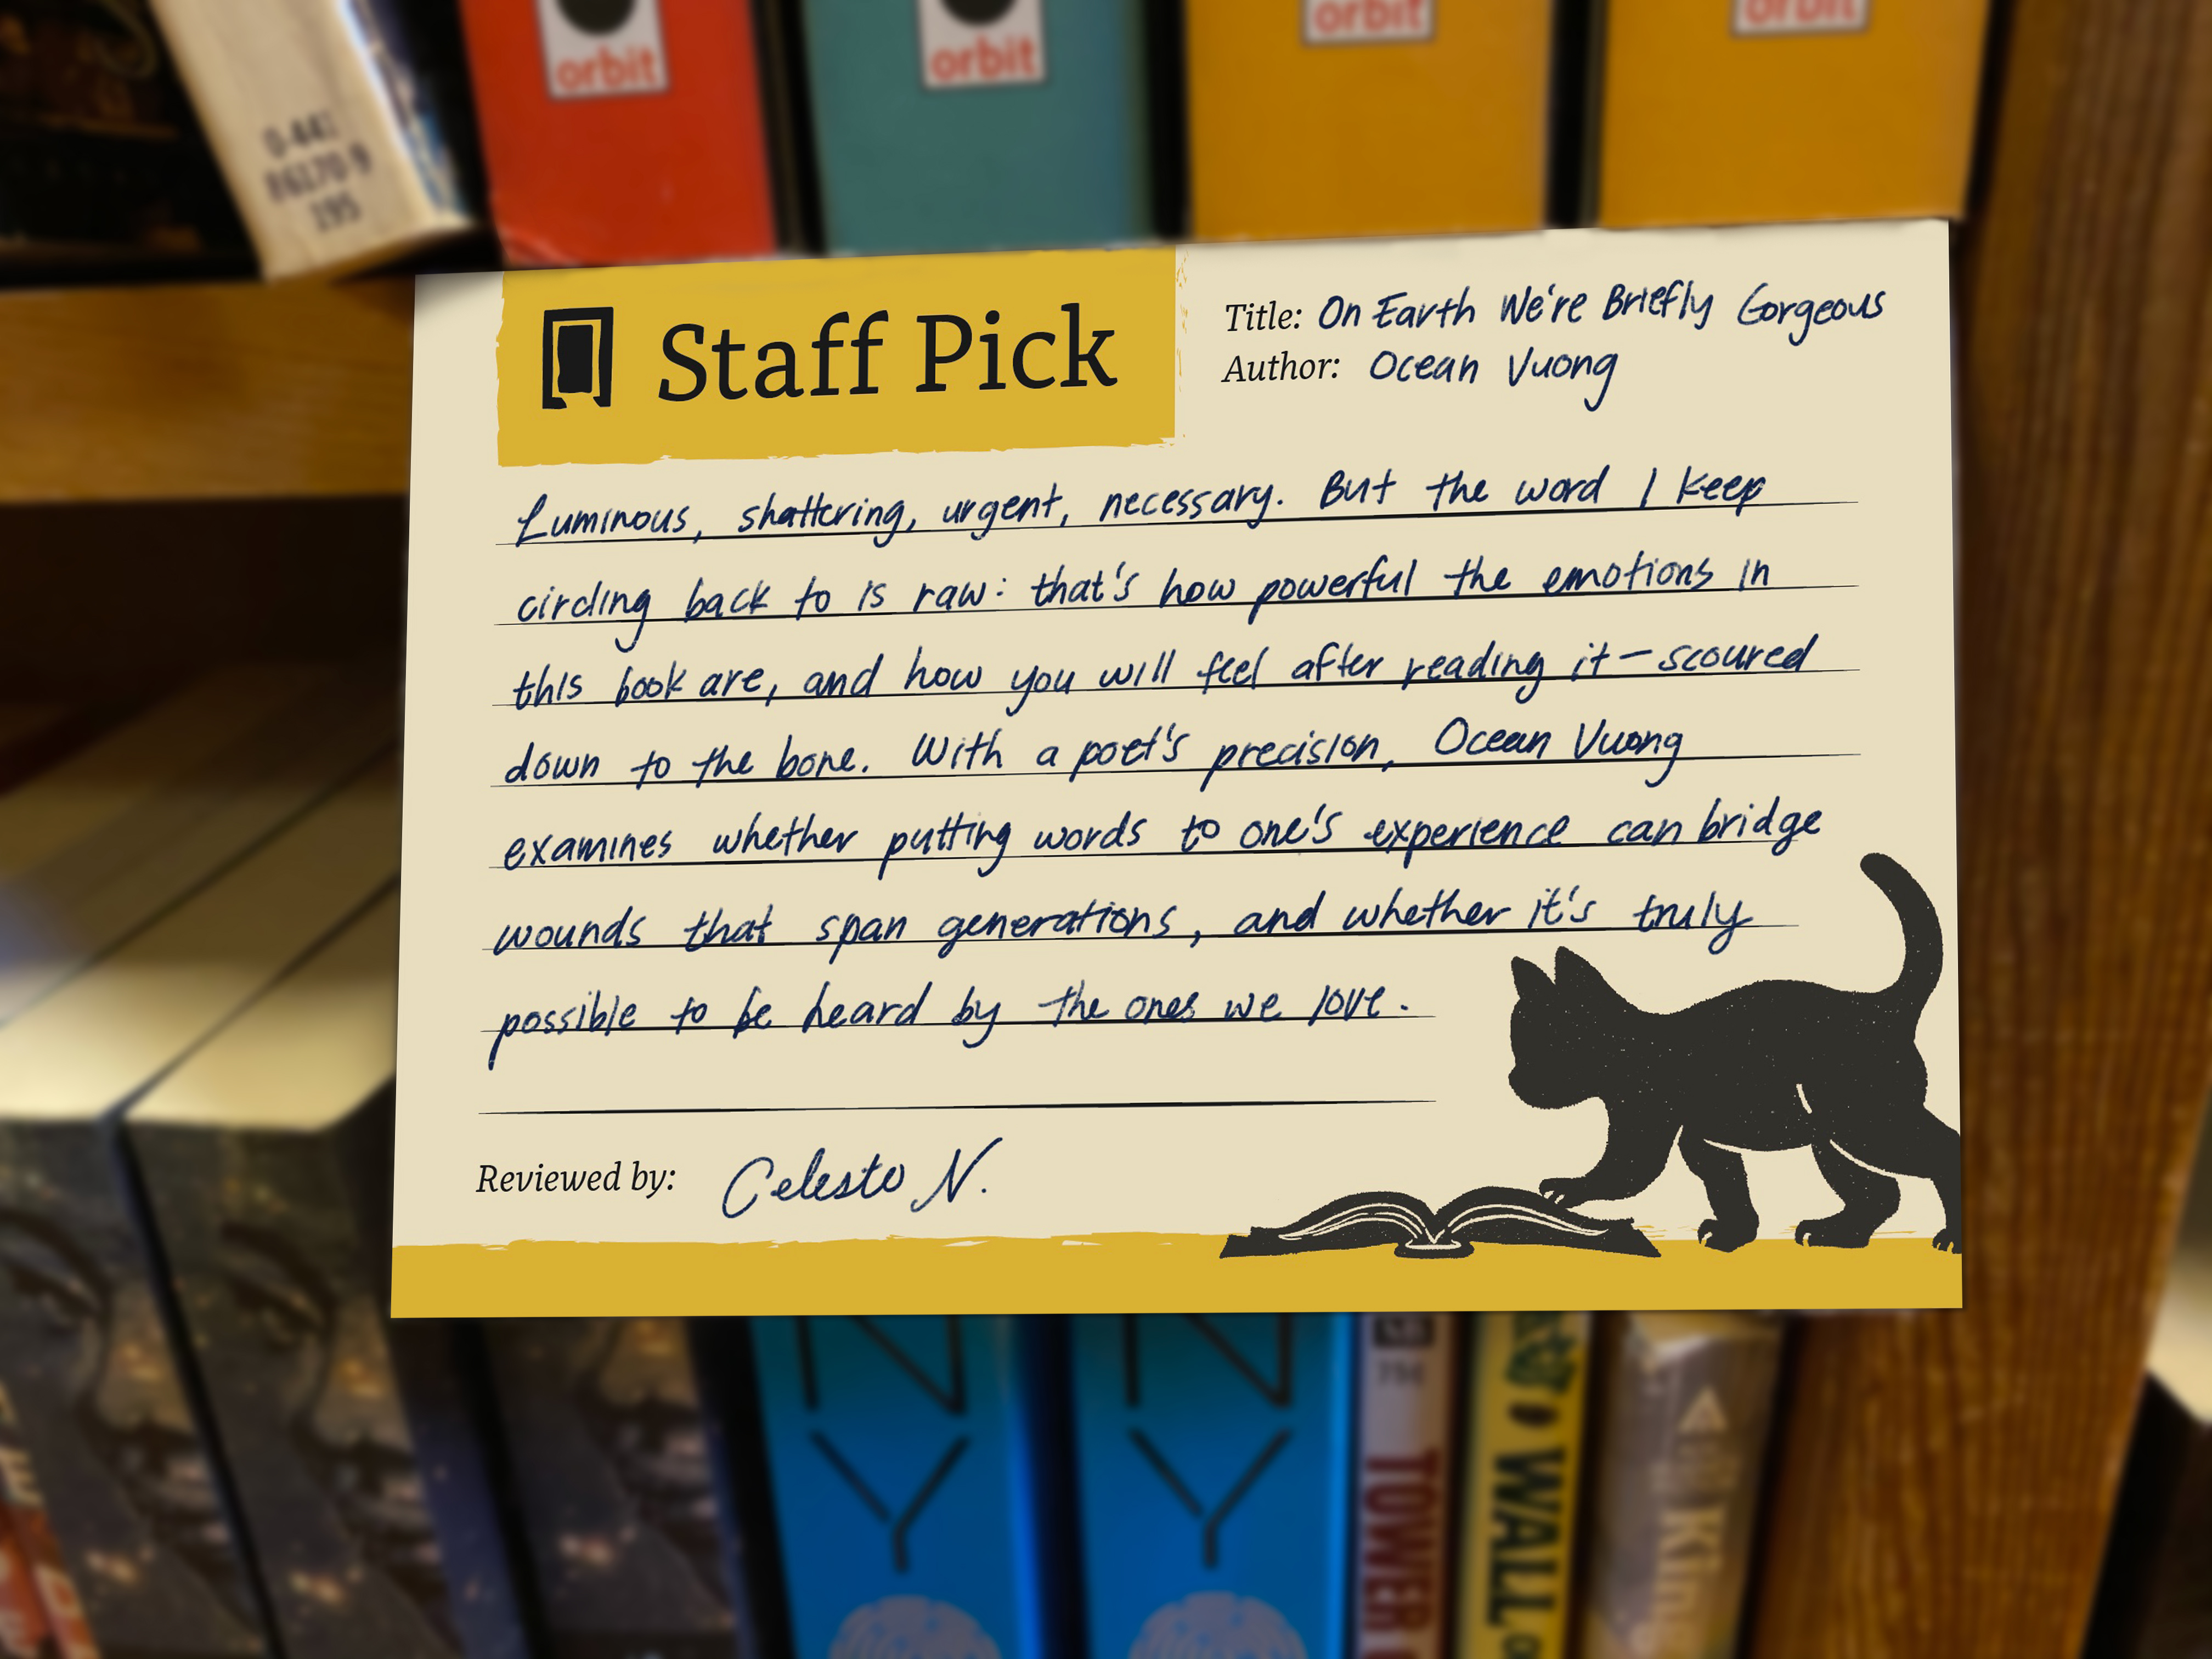 orbit
orbit
orbit
orbit
0-441
86170-9
195
Staff Pick
Title: On Earth We're Briefly Gorgeous
Author: Ocean Vuong
Luminous, shattering, urgent, necessary. But the word I keep
circling back to is raw: that's how powerful the emotions in
this book are, and how you will feel after reading it—scoured
down to the bone. With a poet's precision, Ocean Vuong
examines whether putting words to one's experience can bridge
wounds that span generations, and whether it's truly
possible to be heard by the ones we love.
Reviewed by: Celesto N.
NY
NY
TOWER
WALL